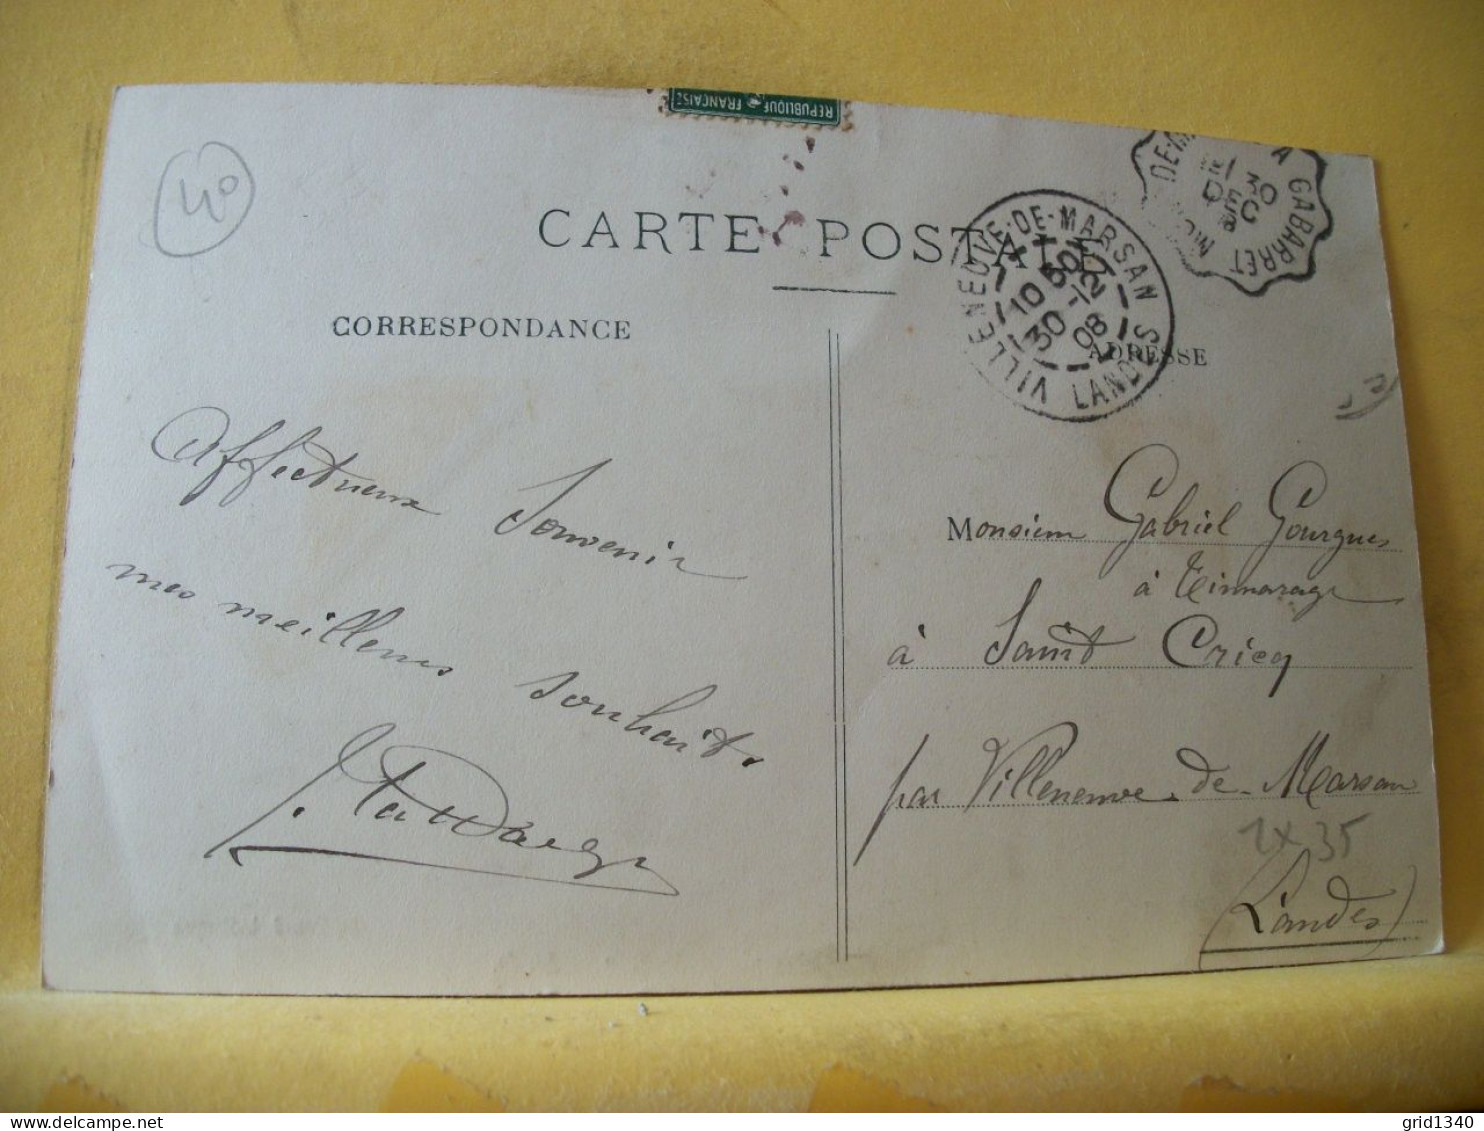 REPUBLIQUE FRANÇAISE
40
CARTE POSTALE
DE-M A GABARRET
30
DEC
VILLENEUVE-DE-MARSAN
10 50
30 -12
08
LANDES
CORRESPONDANCE
ADRESSE
Affectueux Souvenir
mes meilleurs souhaits
Monsieur Gabriel Gourgues
à
à Saint Cricq
par Villeneuve-de-Marsan
2x35
(Landes)
grid1340